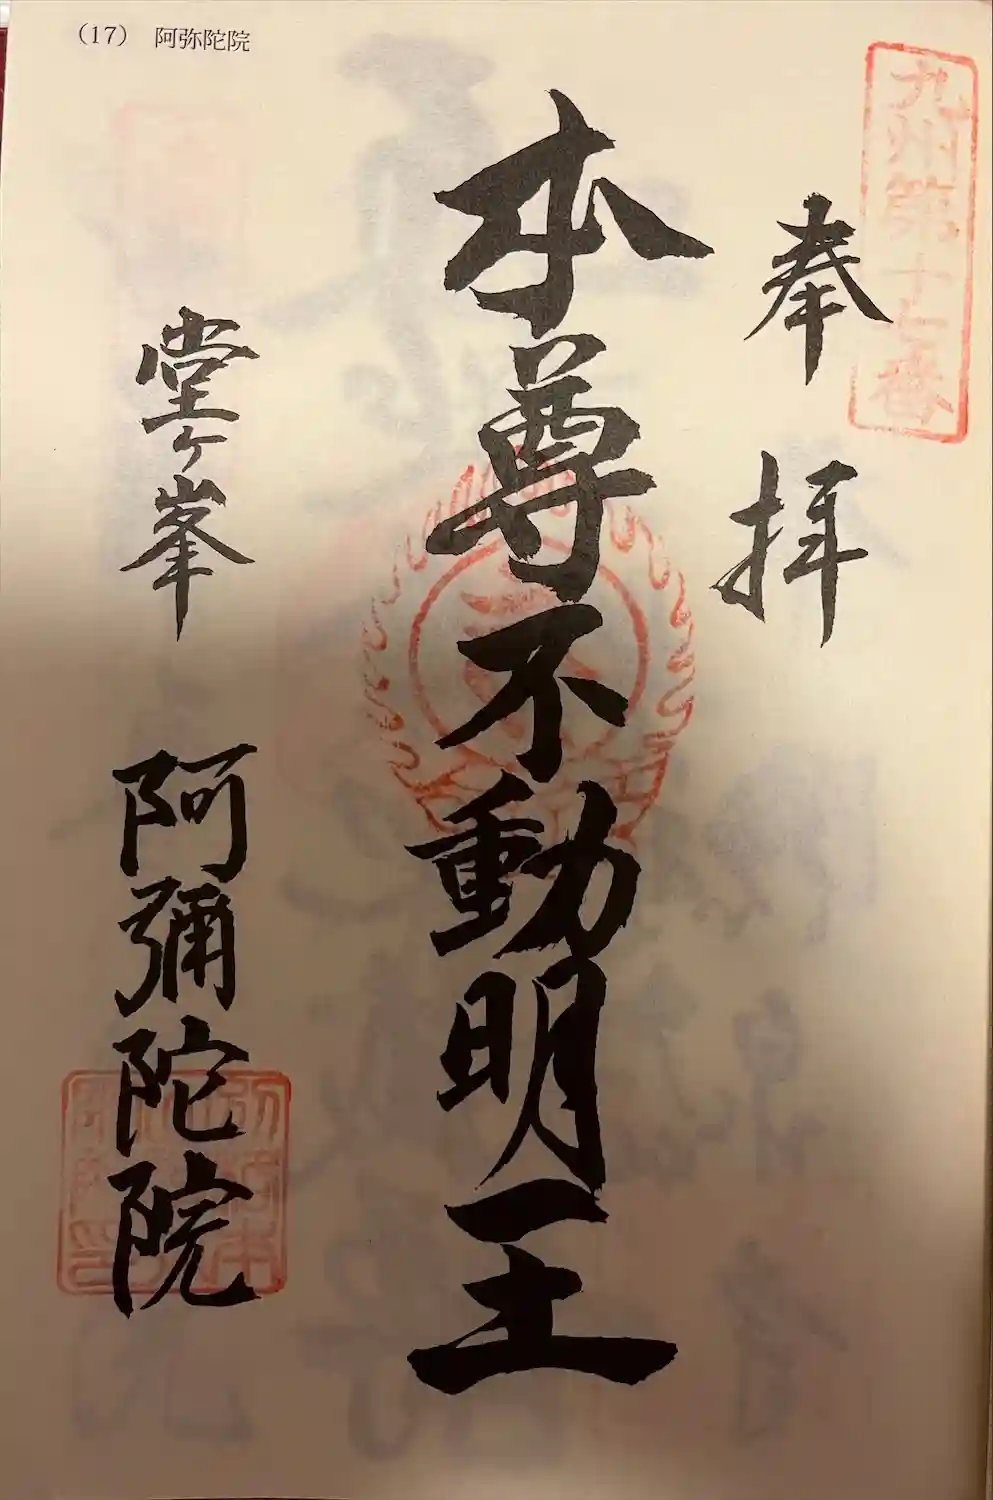 (17) 阿弥陀院
九州第十七番
奉拝
本尊不動明王
堂ヶ峯 阿彌陀院